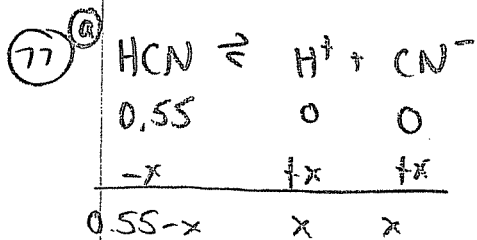 77 a
HCN ⇌ H⁺ + CN⁻
0.55 0 0
-x +x +x
0.55-x x x